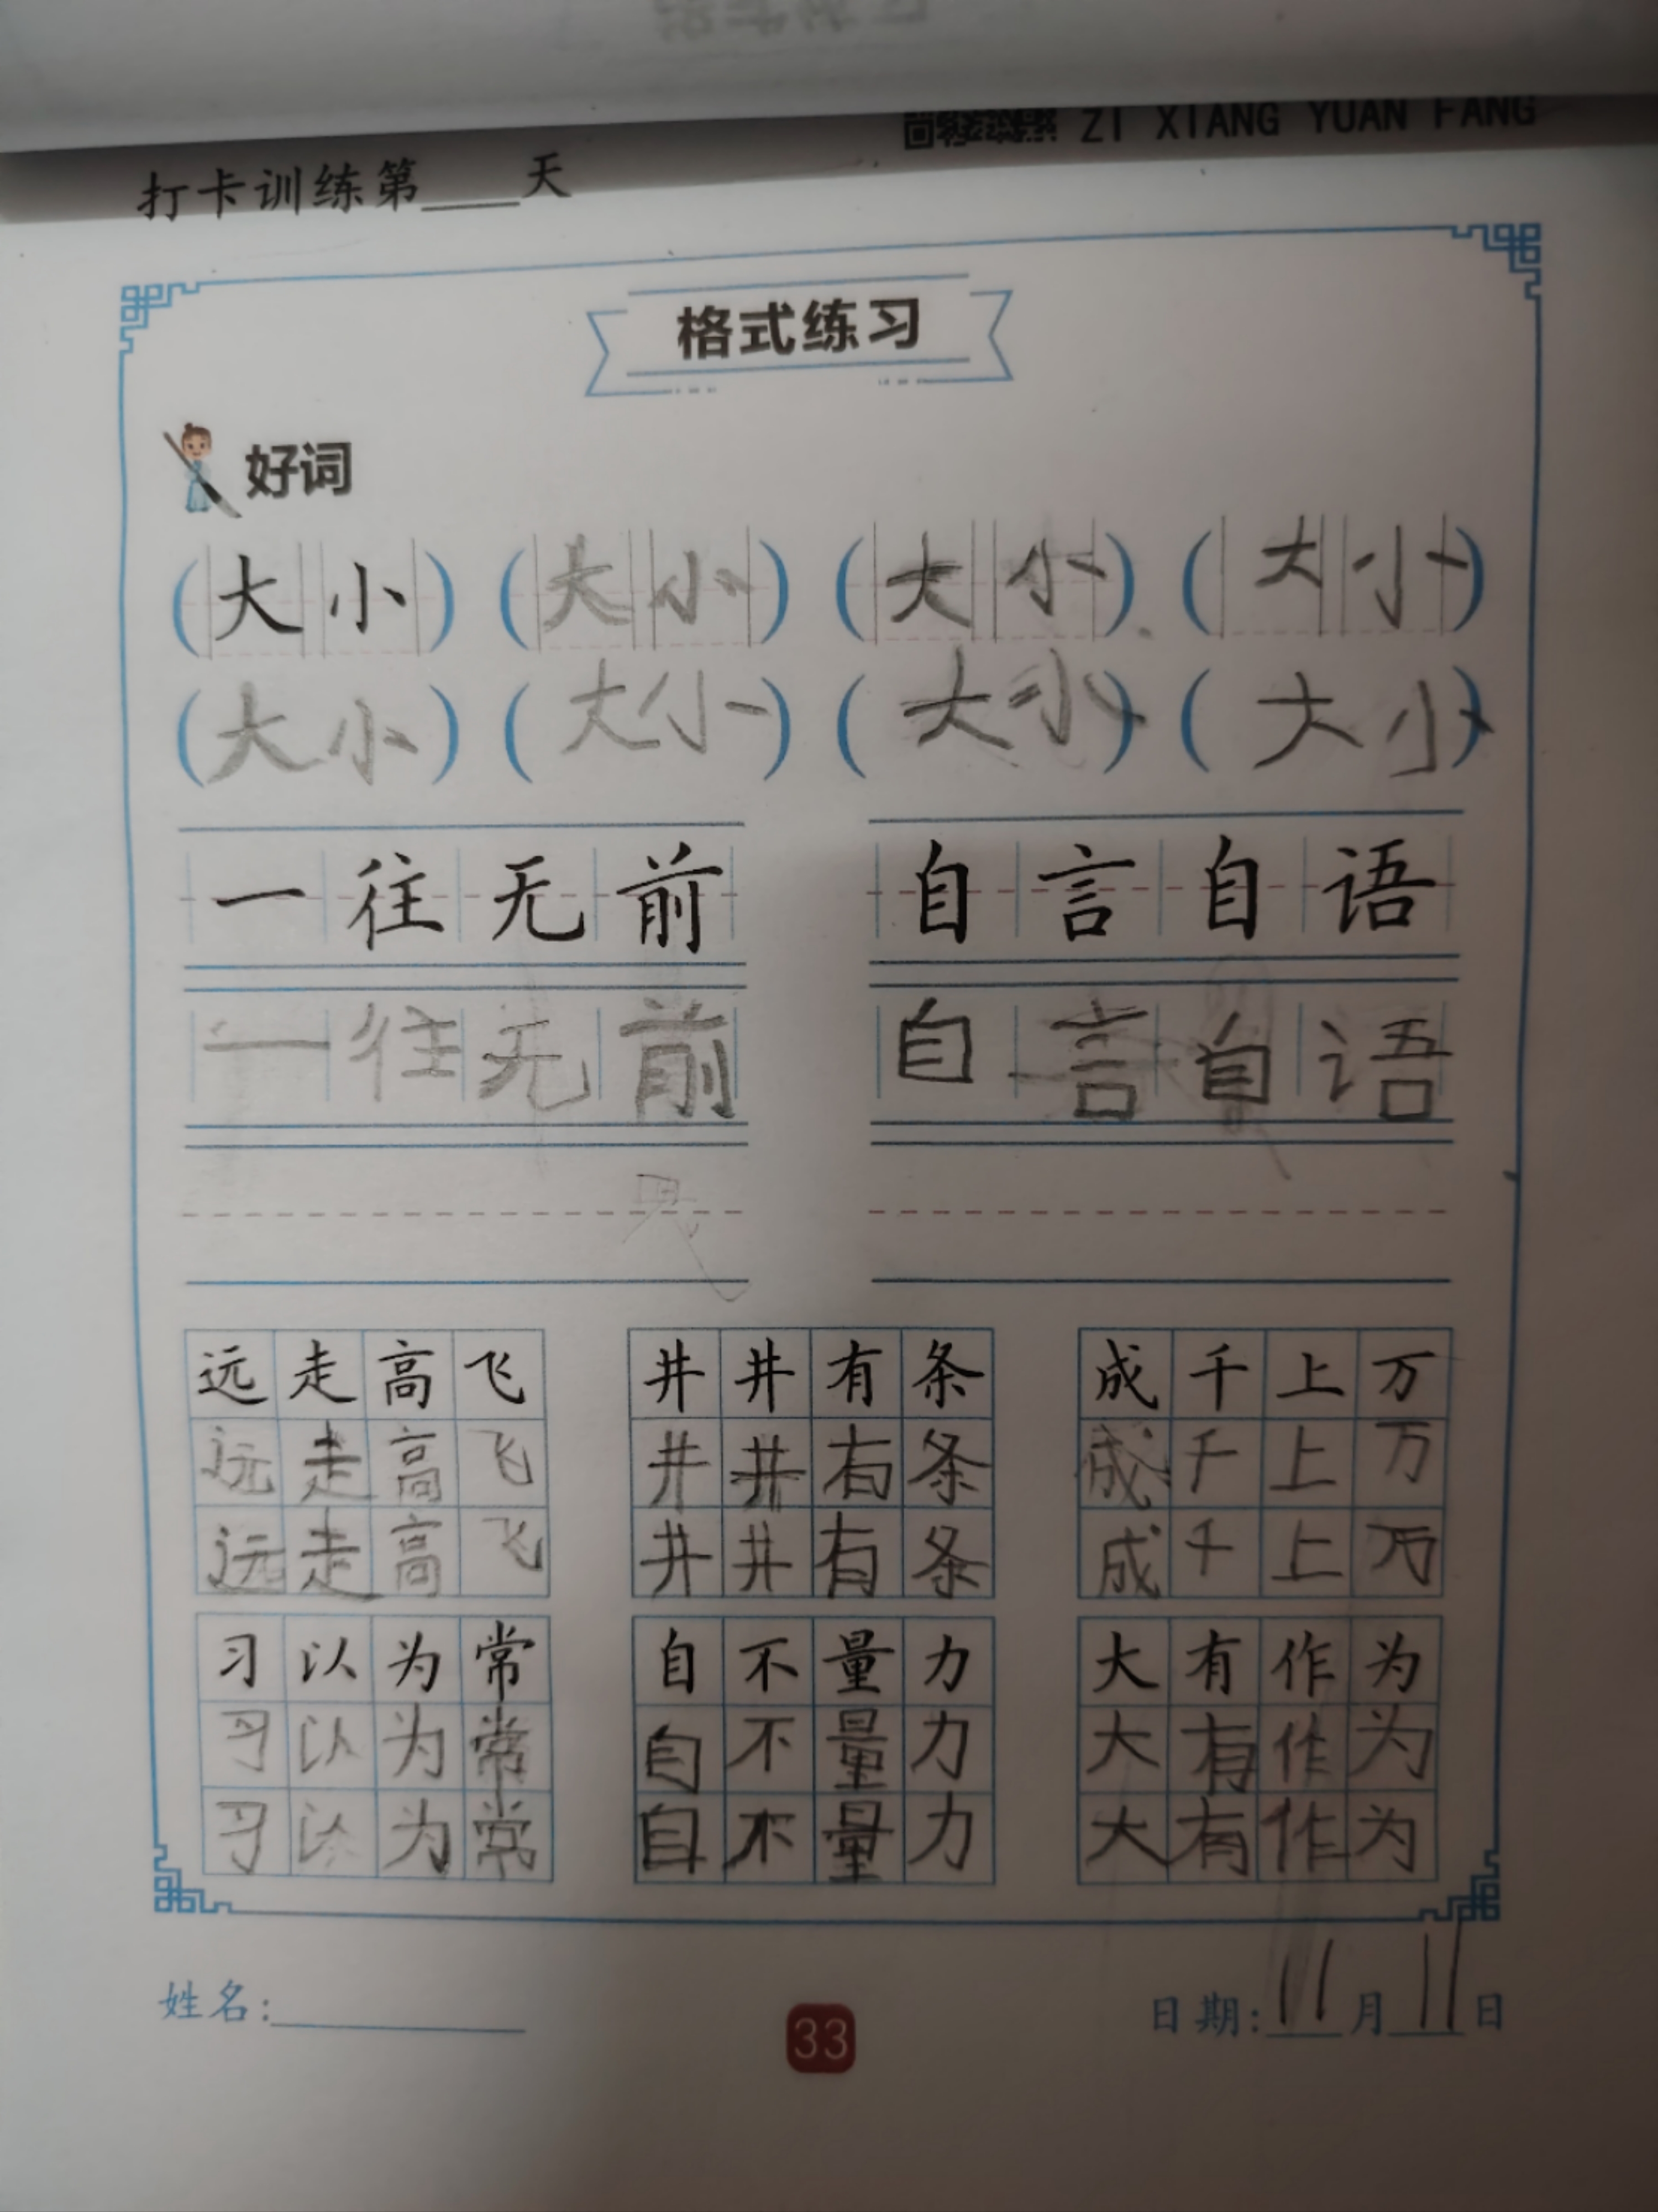 ZI XIANG YUAN FANG
打卡训练第____天
格式练习
好词
(大小) (大小) (大小) (大小)
(大小) (大小) (大小) (大小)
一往无前 自言自语
一往无前 自言自语
远走高飞 井井有条 成千上万
远走高飞 井井有条 成千上万
远走高飞 井井有条 成千上万
习以为常 自不量力 大有作为
习以为常 自不量力 大有作为
习以为常 自不量力 大有作为
姓名:________ 33 日期:11月11日